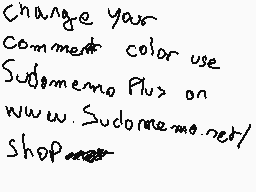 change your
comment color use
Sudomemo Plus on
www.Sudomemo.net/
shop